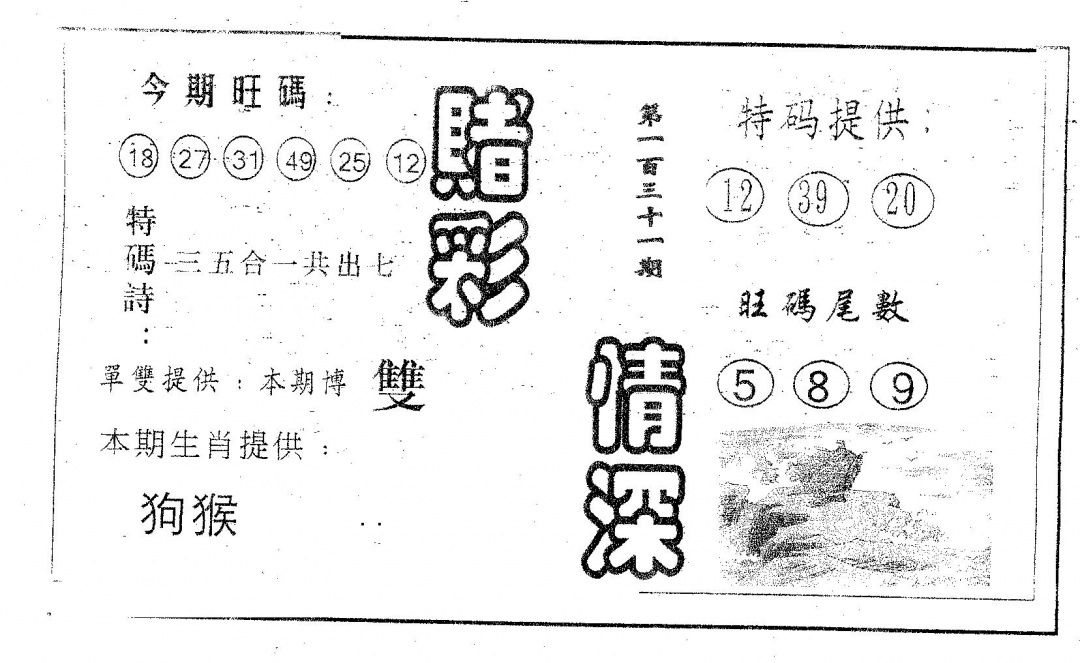 今期旺碼：
18 27 31 49 25 12
特碼詩：
三五合一共出七
單雙提供：本期博 雙
本期生肖提供：
狗猴
賭彩
情深
第一百三十一期
特码提供：
12 39 20
旺碼尾數
5 8 9